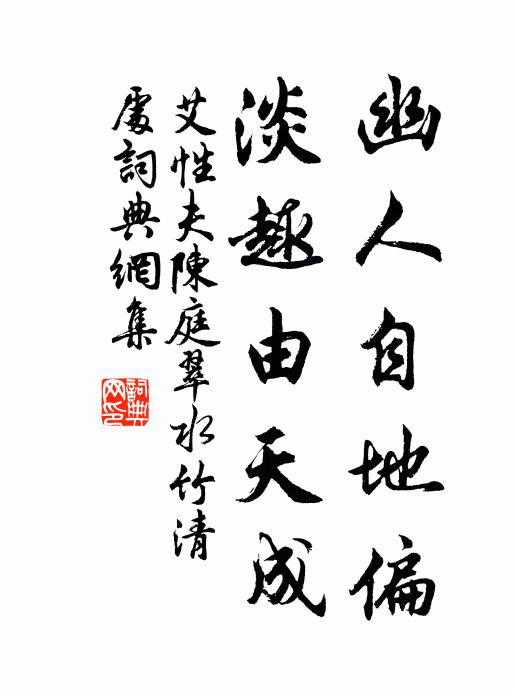 幽人自地偏
淡趣由天成
艾性夫陳庭翠水竹清
處詞典網集
詞典
网印